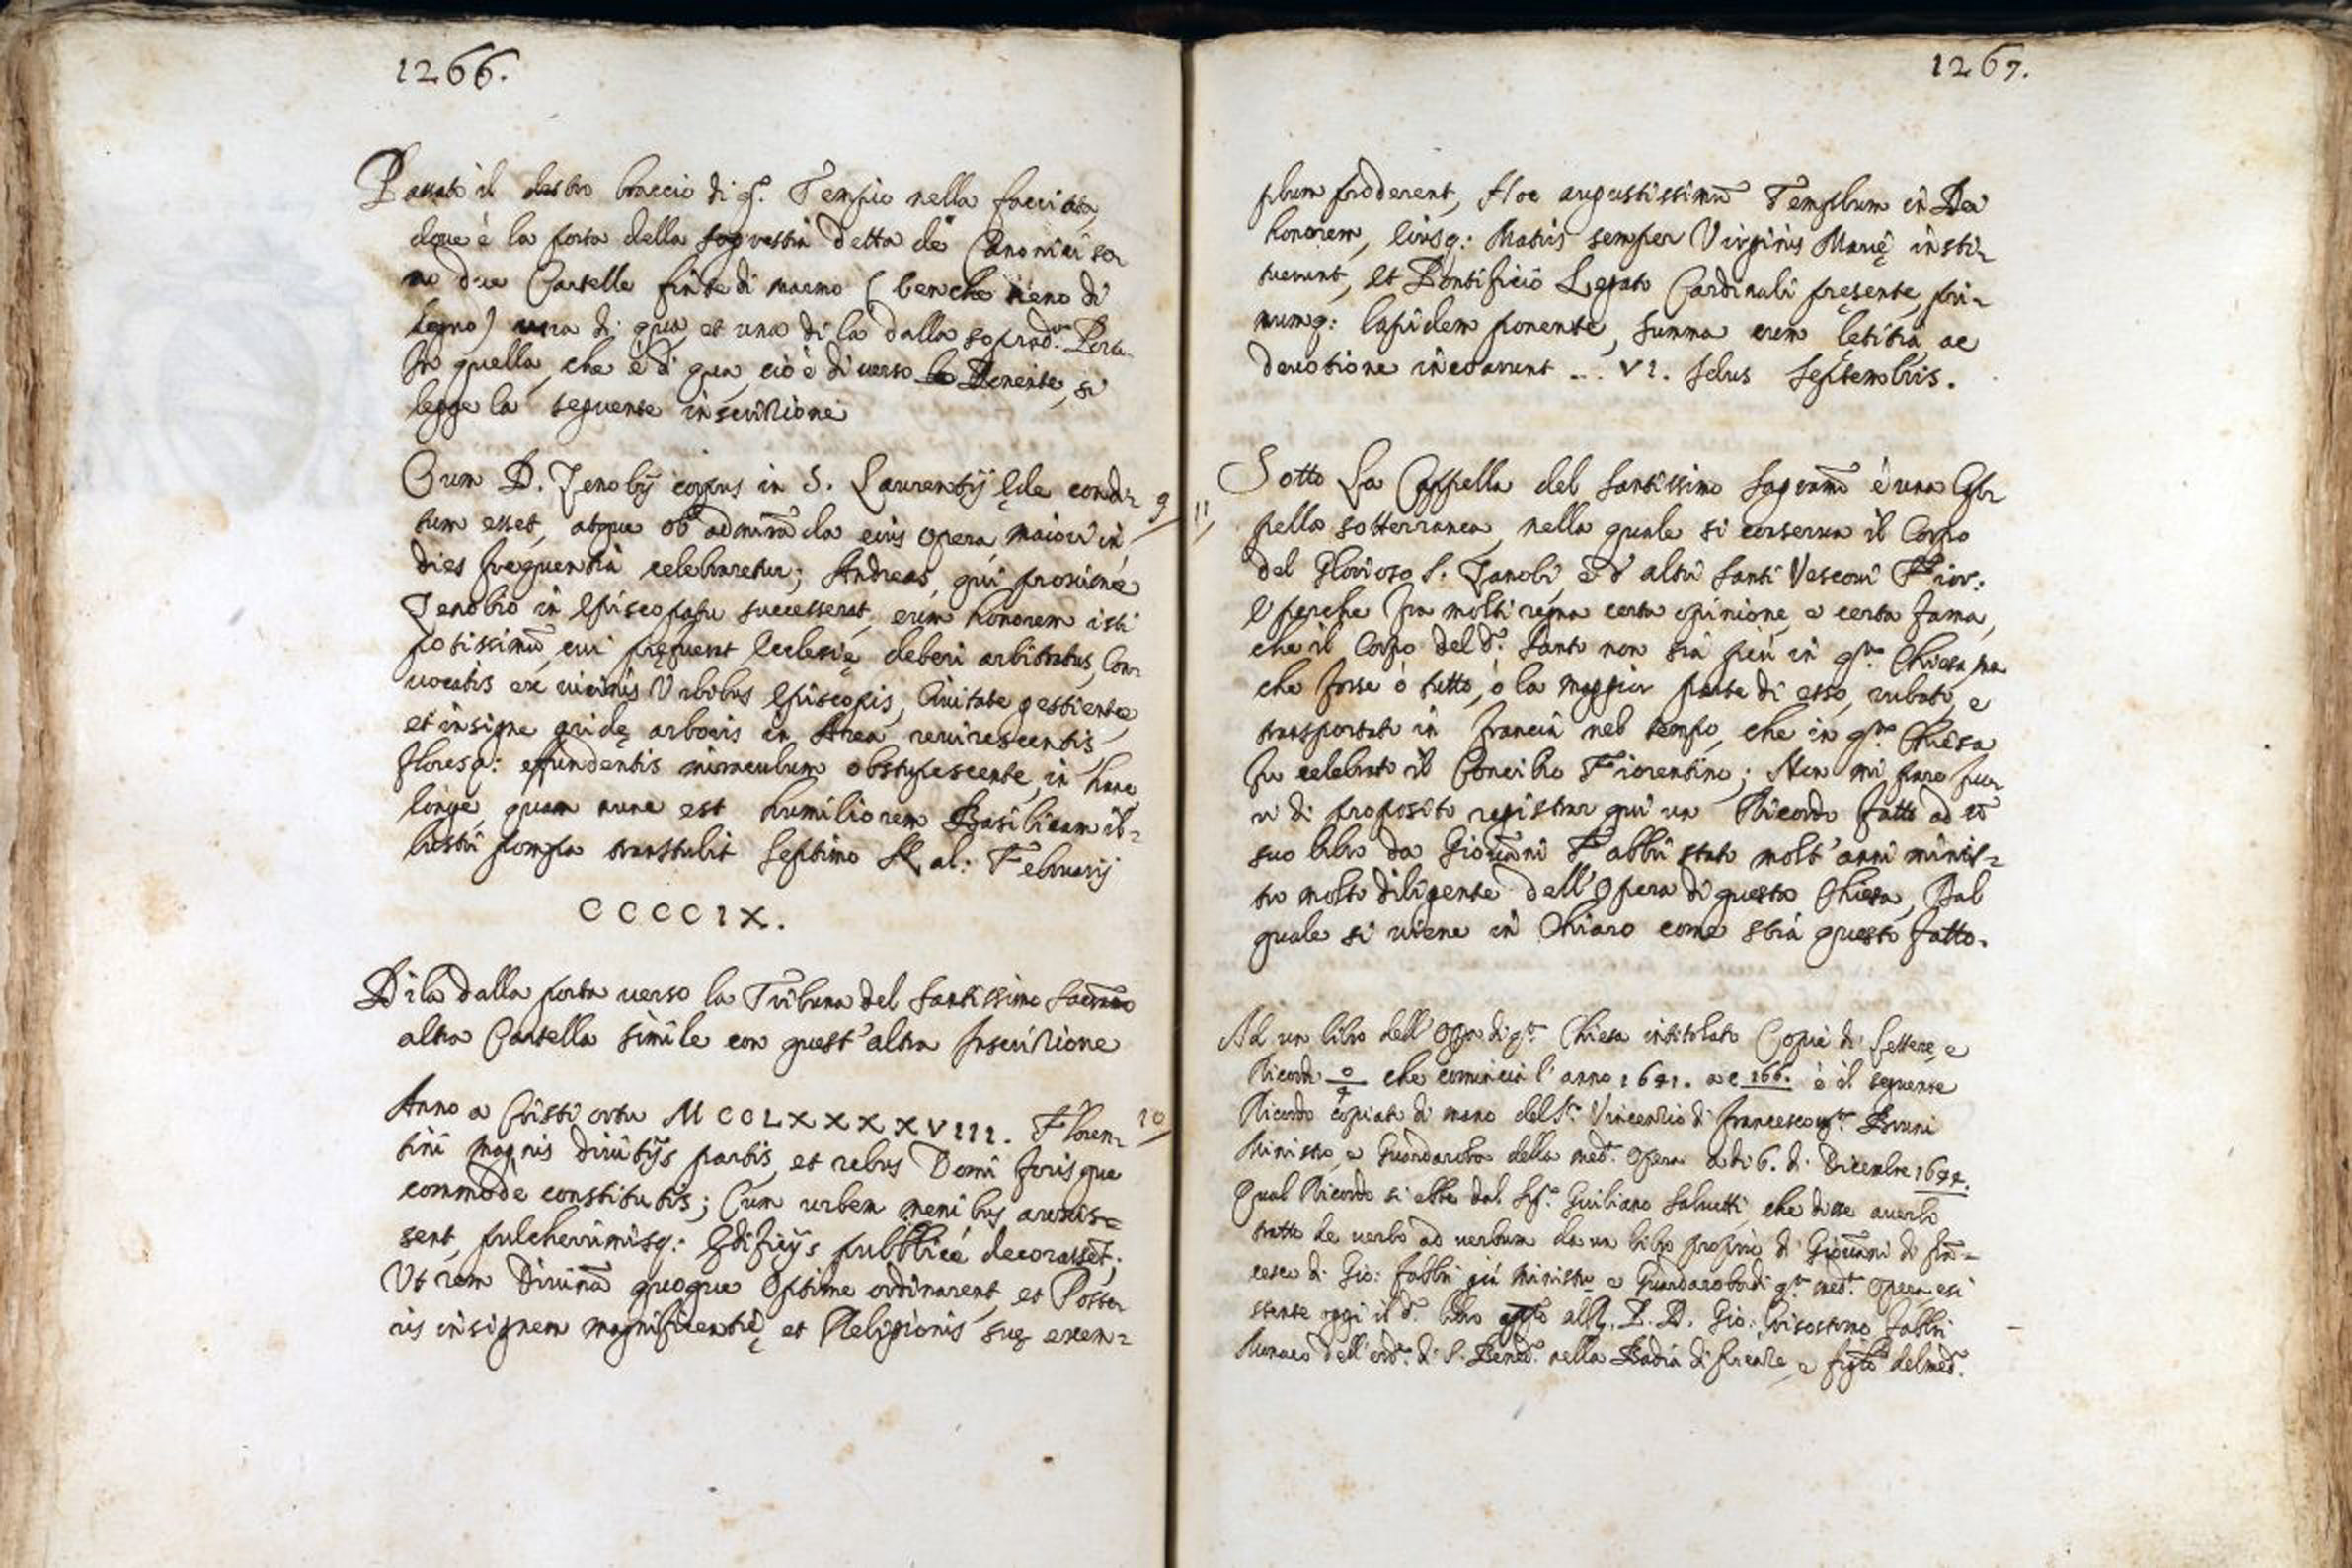 1266.
Passato il destro braccio di q.º Tempio nella facciata,
doue è la porta della sagrestia detta de Canonici so=
no due Cartelle finte di marmo (benche sieno di
legno) una di qua, et una di la dalla soprad.ª Porta.
In quella, che è di qua, cioè di uerso Ponente, si
legge la seguente inscrizione
Cum D. Zenobij corpus in S. Laurentij Ęde condi= 9
tum esset, atque ob admirãda eius opera, maiori in
dies frequentia celebraretur; Andreas, qui proxime
Zenobio in Episcopatu successerat, eum honorem isti
potissimũ, cui pręfuerat Ecclesię deberi arbitratus, Con=
uocatis ex uicinis Vrbibus Episcopis, Ciuitate gestiente,
et insigne aridę arboris in Area reuirescentis,
floresq: effundentis miraculum obstupescente, in hanc
longe, quam nunc est humiliorem Basilicam il=
lustri pompa transtulit Septimo Kal: Februarij
CCCCIX.
Di là dalla porta uerso la Tribuna del Santissimo
altra Cartella simile con quest'altra Inscrizione
Anno a Cristi ortu MCCLXXXXVIII. Floren= 10
tini magnis diuitijs partis, et rebus Domi forisque
commode constitutis; Cum urbem menibus auxis=
sent, pulcherrimisq: Ędificijs pubblice decorasset;
Vt rem Diuinã quoque optime ordinarent, et Poste=
ris insignem magnificentię, et Religionis suę exem=
1267.
plum proderent, Hoc augustissimũ Templum in Dei
honorem, Eiusq: Matris semper Virginis Marię insti=
tuerunt, et Pontificio Legato Cardinali pręsente, pri=
mumq: lapidem ponente, summa cum letitia ac
deuotione incoarunt ... VI. Idus Septembris.
11 Sotto La Cappella del Santissimo Sagramẽ è una Cap=
pella sotterranea, nella quale si conserua il Corpo
del Glorioso S. Zanobi, e d'altri Santi Vescoui Fior:
E perche fra molti regna certa opinione, e certa fama,
che il Corpo del d.º Santo non sia più in q.ta Chiesa, ma
che forse ò tutto, ò la maggior parte di esso, rubato, e
transportato in Francia nel tempo, che in q.ta Chiesa
fu celebrato il Concilio Fiorentino; Non mi pare fuo=
ri di proposito registrar qui un Ricordo fatto ad ũ
suo libro da Giouãni Fabbri stato molt'anni minis=
tro molto diligente dell'Opera di questa Chiesa, Dal
quale si uiene in Chiaro come stia questo fatto.
Ad un libro dell'Opra di q.ta Chiesa intitolato Copie di Lettere, e
Ricordi che comincia l'anno 1641. a c 166. è il seguente
Ricordo copiato di mano del S.r Vincenzio di Francesco Bruni
Ministro, e Guardaroba della med.ª Opera a di 6. di Dicembre
Qual Ricordo si ebbe dal Sig.r Giuliano Saluetti, che disse auerlo
tratto de uerbo ad uerbum da un libro proprio di Giouanni di Frã=
cesco di Gio: Fabbri già Ministro e Guardaroba di q.ta med.ª Opera esi
stente oggi il d.º libro al R. P. D. Gio: Grisostomo Fabbri
Monaco dell'ord.e di S. Bened.º nella Badia di firenze, e figlo del med.º